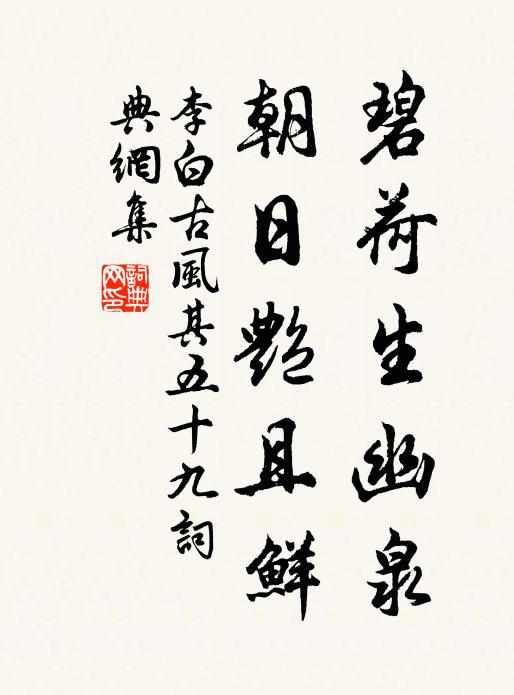 碧荷生幽泉
朝日艷且鮮
李白古風其五十九詞
典網集
詞典網印